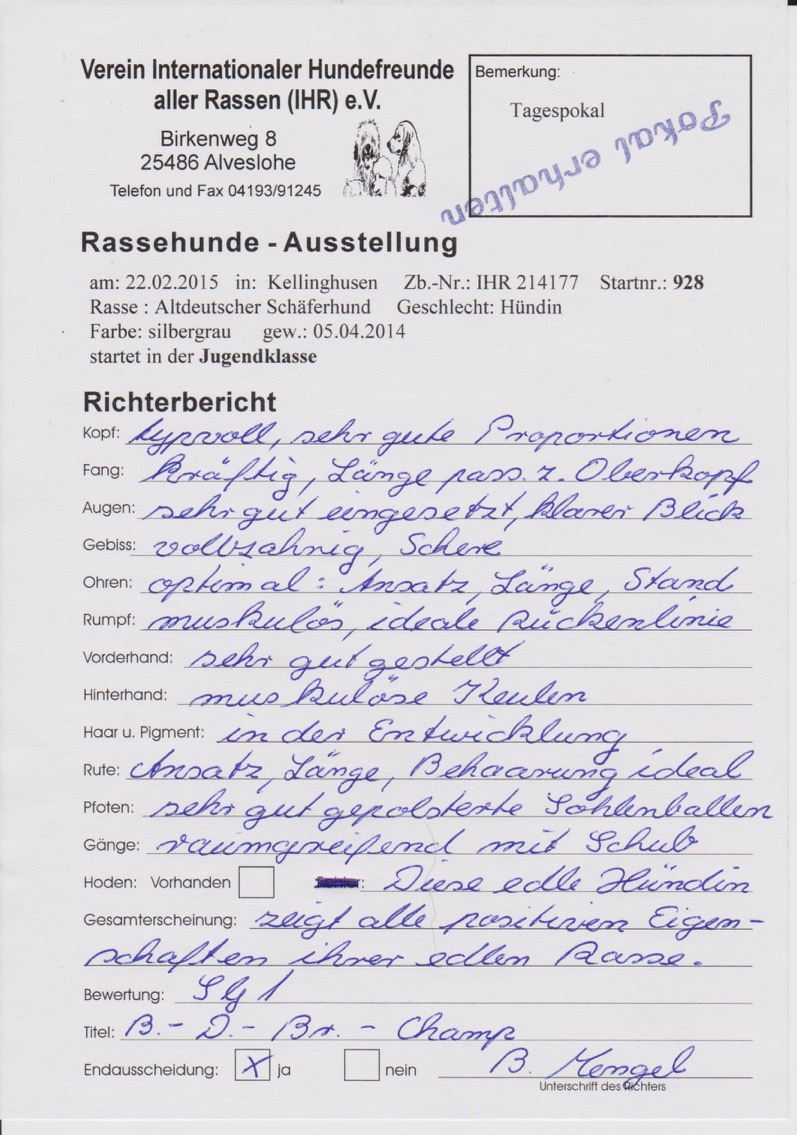 Verein Internationaler Hundefreunde
aller Rassen (IHR) e.V.
Birkenweg 8
25486 Alveslohe
Telefon und Fax 04193/91245
Bemerkung:
Tagespokal
Pokal erhalten
Rassehunde - Ausstellung
am: 22.02.2015 in: Kellinghusen Zb.-Nr.: IHR 214177 Startnr.: 928
Rasse : Altdeutscher Schäferhund Geschlecht: Hündin
Farbe: silbergrau gew.: 05.04.2014
startet in der Jugendklasse
Richterbericht
Kopf: typvoll, sehr gute Proportionen
Fang: kräftig, Länge pass. z. Oberkopf
Augen: sehr gut eingesetzt, klarer Blick
Gebiss: vollzahnig, Schere
Ohren: optimal: Ansatz, Länge, Stand
Rumpf: muskulös, ideale Rückenlinie
Vorderhand: sehr gut gestellt
Hinterhand: muskulöse Keulen
Haar u. Pigment: in der Entwicklung
Rute: Ansatz, Länge, Behaarung ideal
Pfoten: sehr gut gepolsterte Sohlenballen
Gänge: raumgreifend mit Schub
Hoden: Vorhanden : Diese edle Hündin
Gesamterscheinung: zeigt alle positiven Eigen-
schaften ihrer edlen Rasse.
Bewertung: SG 1
Titel: B.- D.- Br. - Champ
Endausscheidung: X ja nein B. Mengel
Unterschrift des Richters